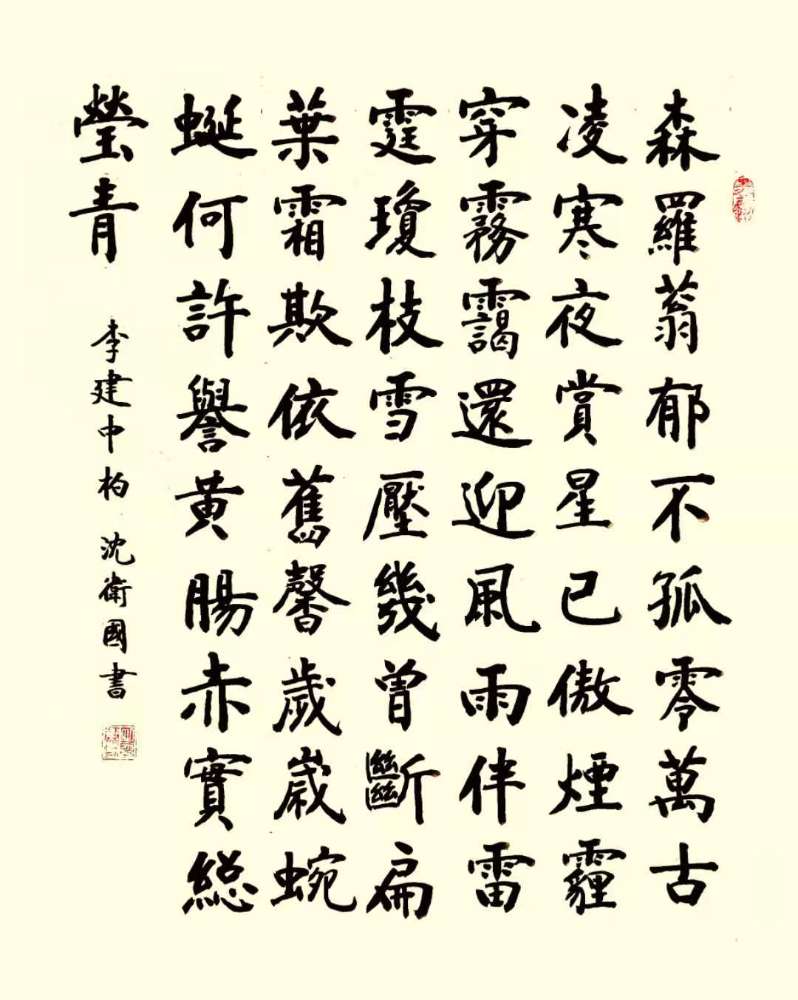 森羅蓊郁不孤零萬古
凌寒夜賞星已傲煙霾
穿霧靄還迎風雨伴雷
霆瓊枝雪壓幾曾斷扁
葉霜欺依舊馨歲歲蜿
蜒何許譽黃腸赤實總
瑩青
李建中柏 沈衛國書